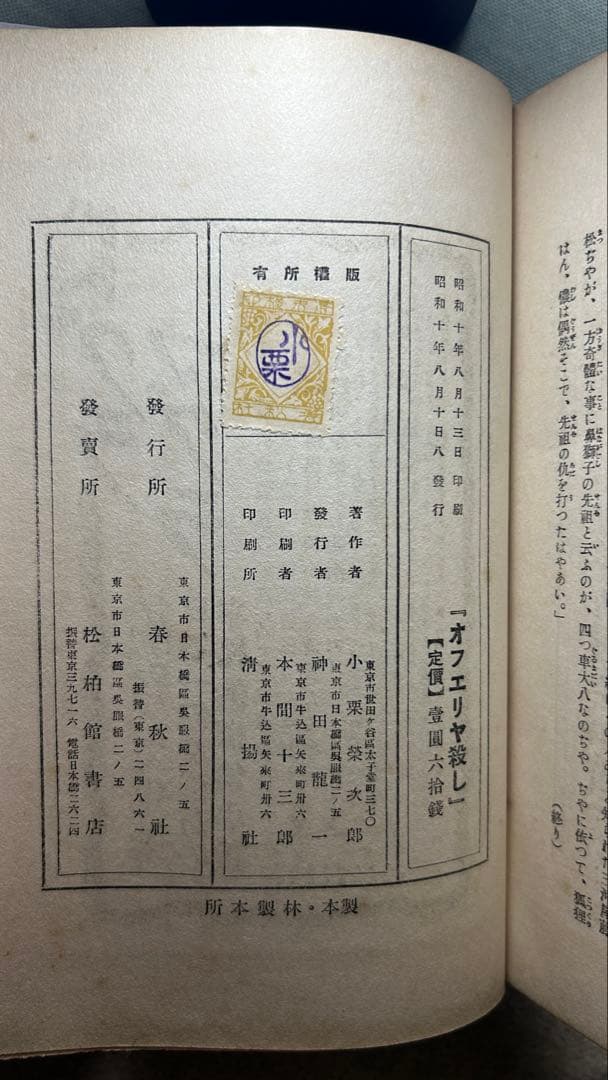 松ちやが、一方奇體な事に鼻獅子の先祖と云ふのが、四つ車大八なのぢや。ぢやに依つて、狐狸
はん、儂は偶然そこで、先祖の仇を打つたはやあい。」
(終り)
昭和十年八月十三日印刷
昭和十年八月十日八發行
『オフエリヤ殺し』
【定價】壹圓六拾錢
版權所有
小栗
東京市世田ヶ谷區太子堂町三七〇
著作者 小栗榮次郎
東京市日本橋區吳服橋二ノ五
發行者 神田龍一
東京市牛込區矢來町卅六
印刷者 本間十三郎
東京市牛込區矢來町卅六
印刷所 淸揚社
東京市日本橋區吳服橋二ノ五
發行所 春秋社
振替(東京)二四八六一
東京市日本橋區吳服橋二ノ五
發賣所 松柏館書店
振替東京三九七一六 電話日本橋二六二四
製本・林製本所